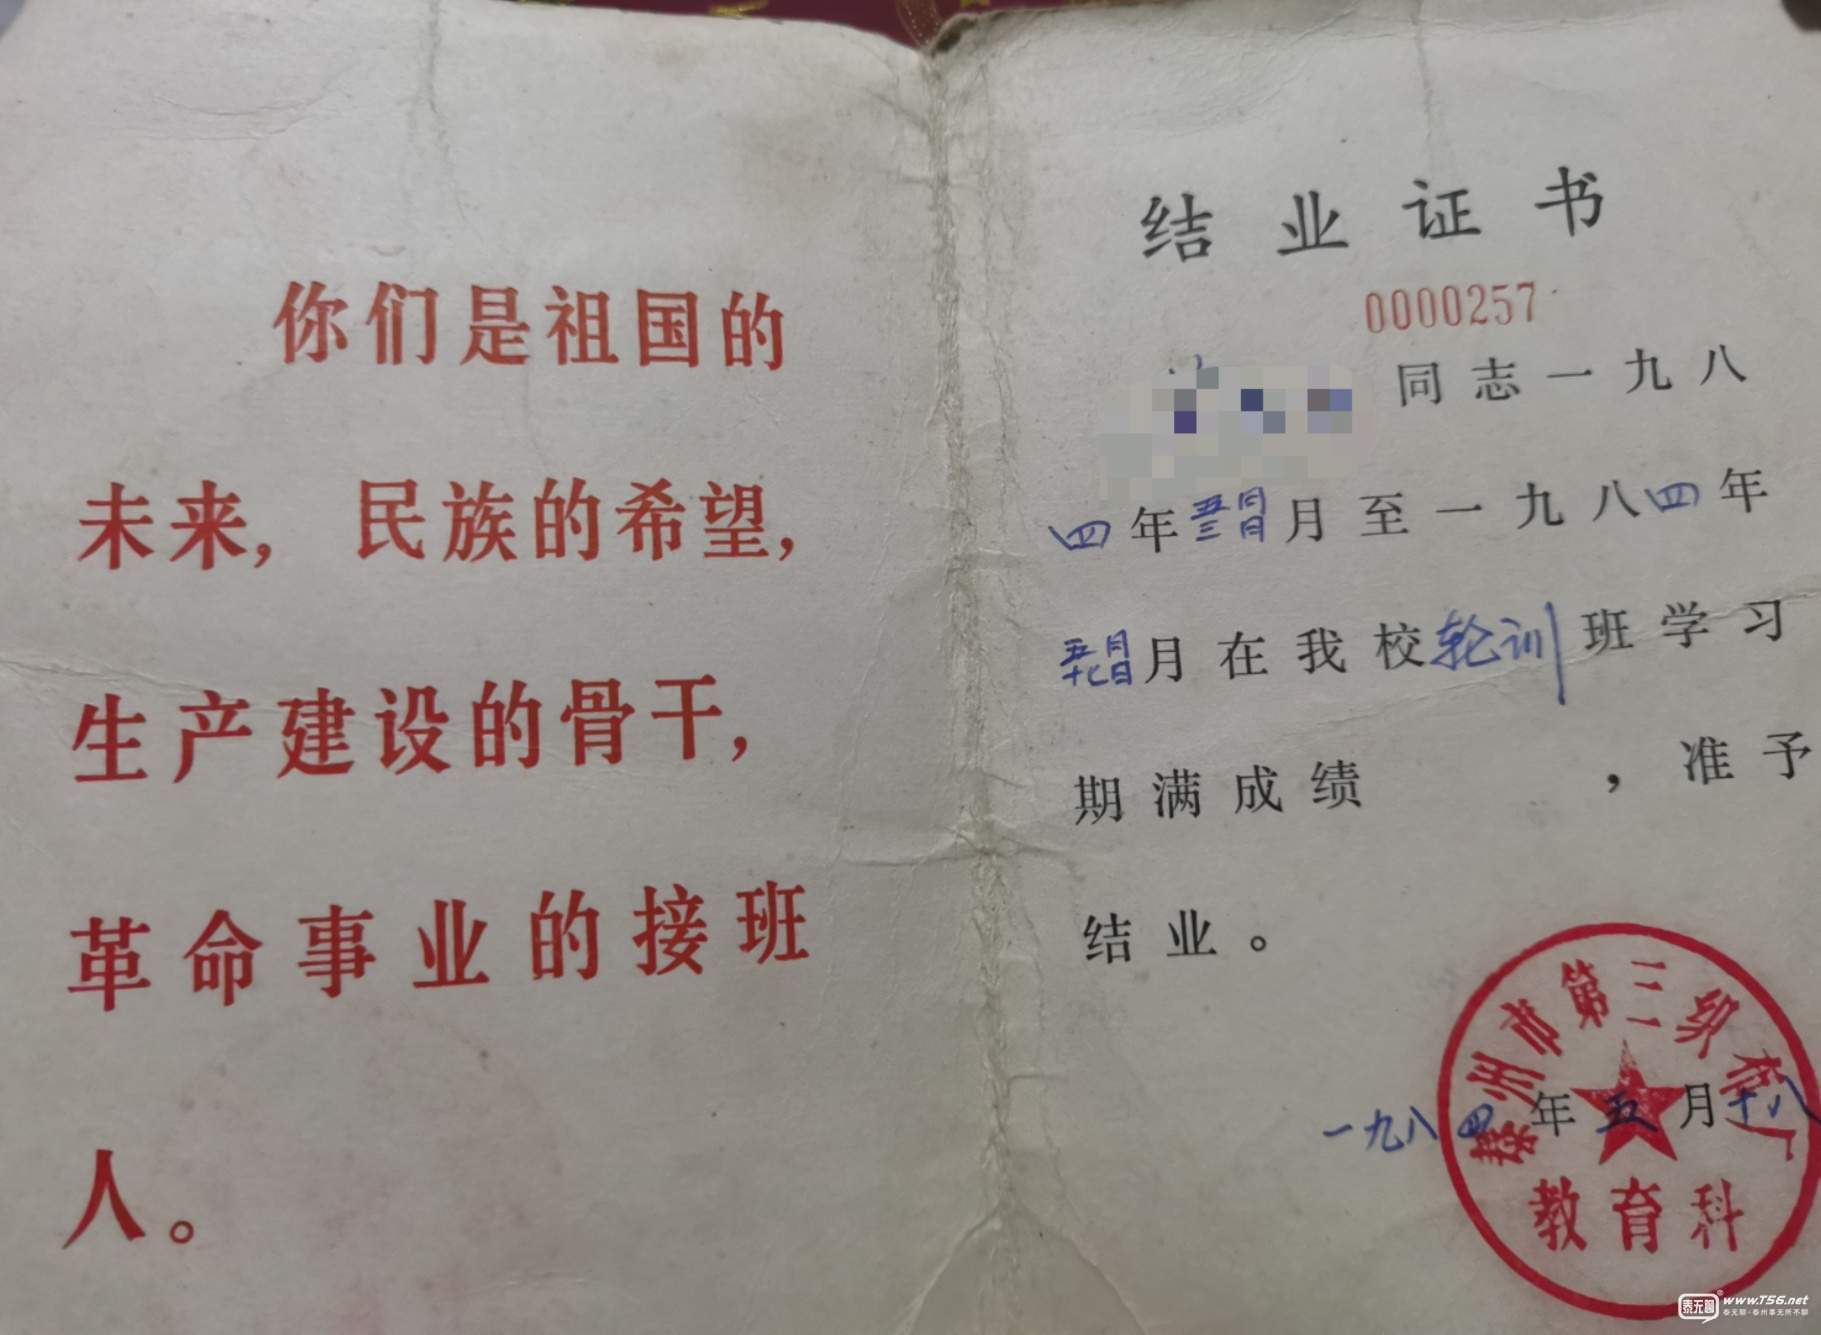 你们是祖国的
未来，民族的希望，
生产建设的骨干，
革命事业的接班
人。
结业证书
0000257
同志一九八
四年五月三日月至一九八四年
五月十七日月在我校轮训班学习
期满成绩，准予
结业。
一九八四年五月十八
泰州市第三织布厂
教育科
泰无聊
www.T56.net
泰无聊·泰州事无所不聊